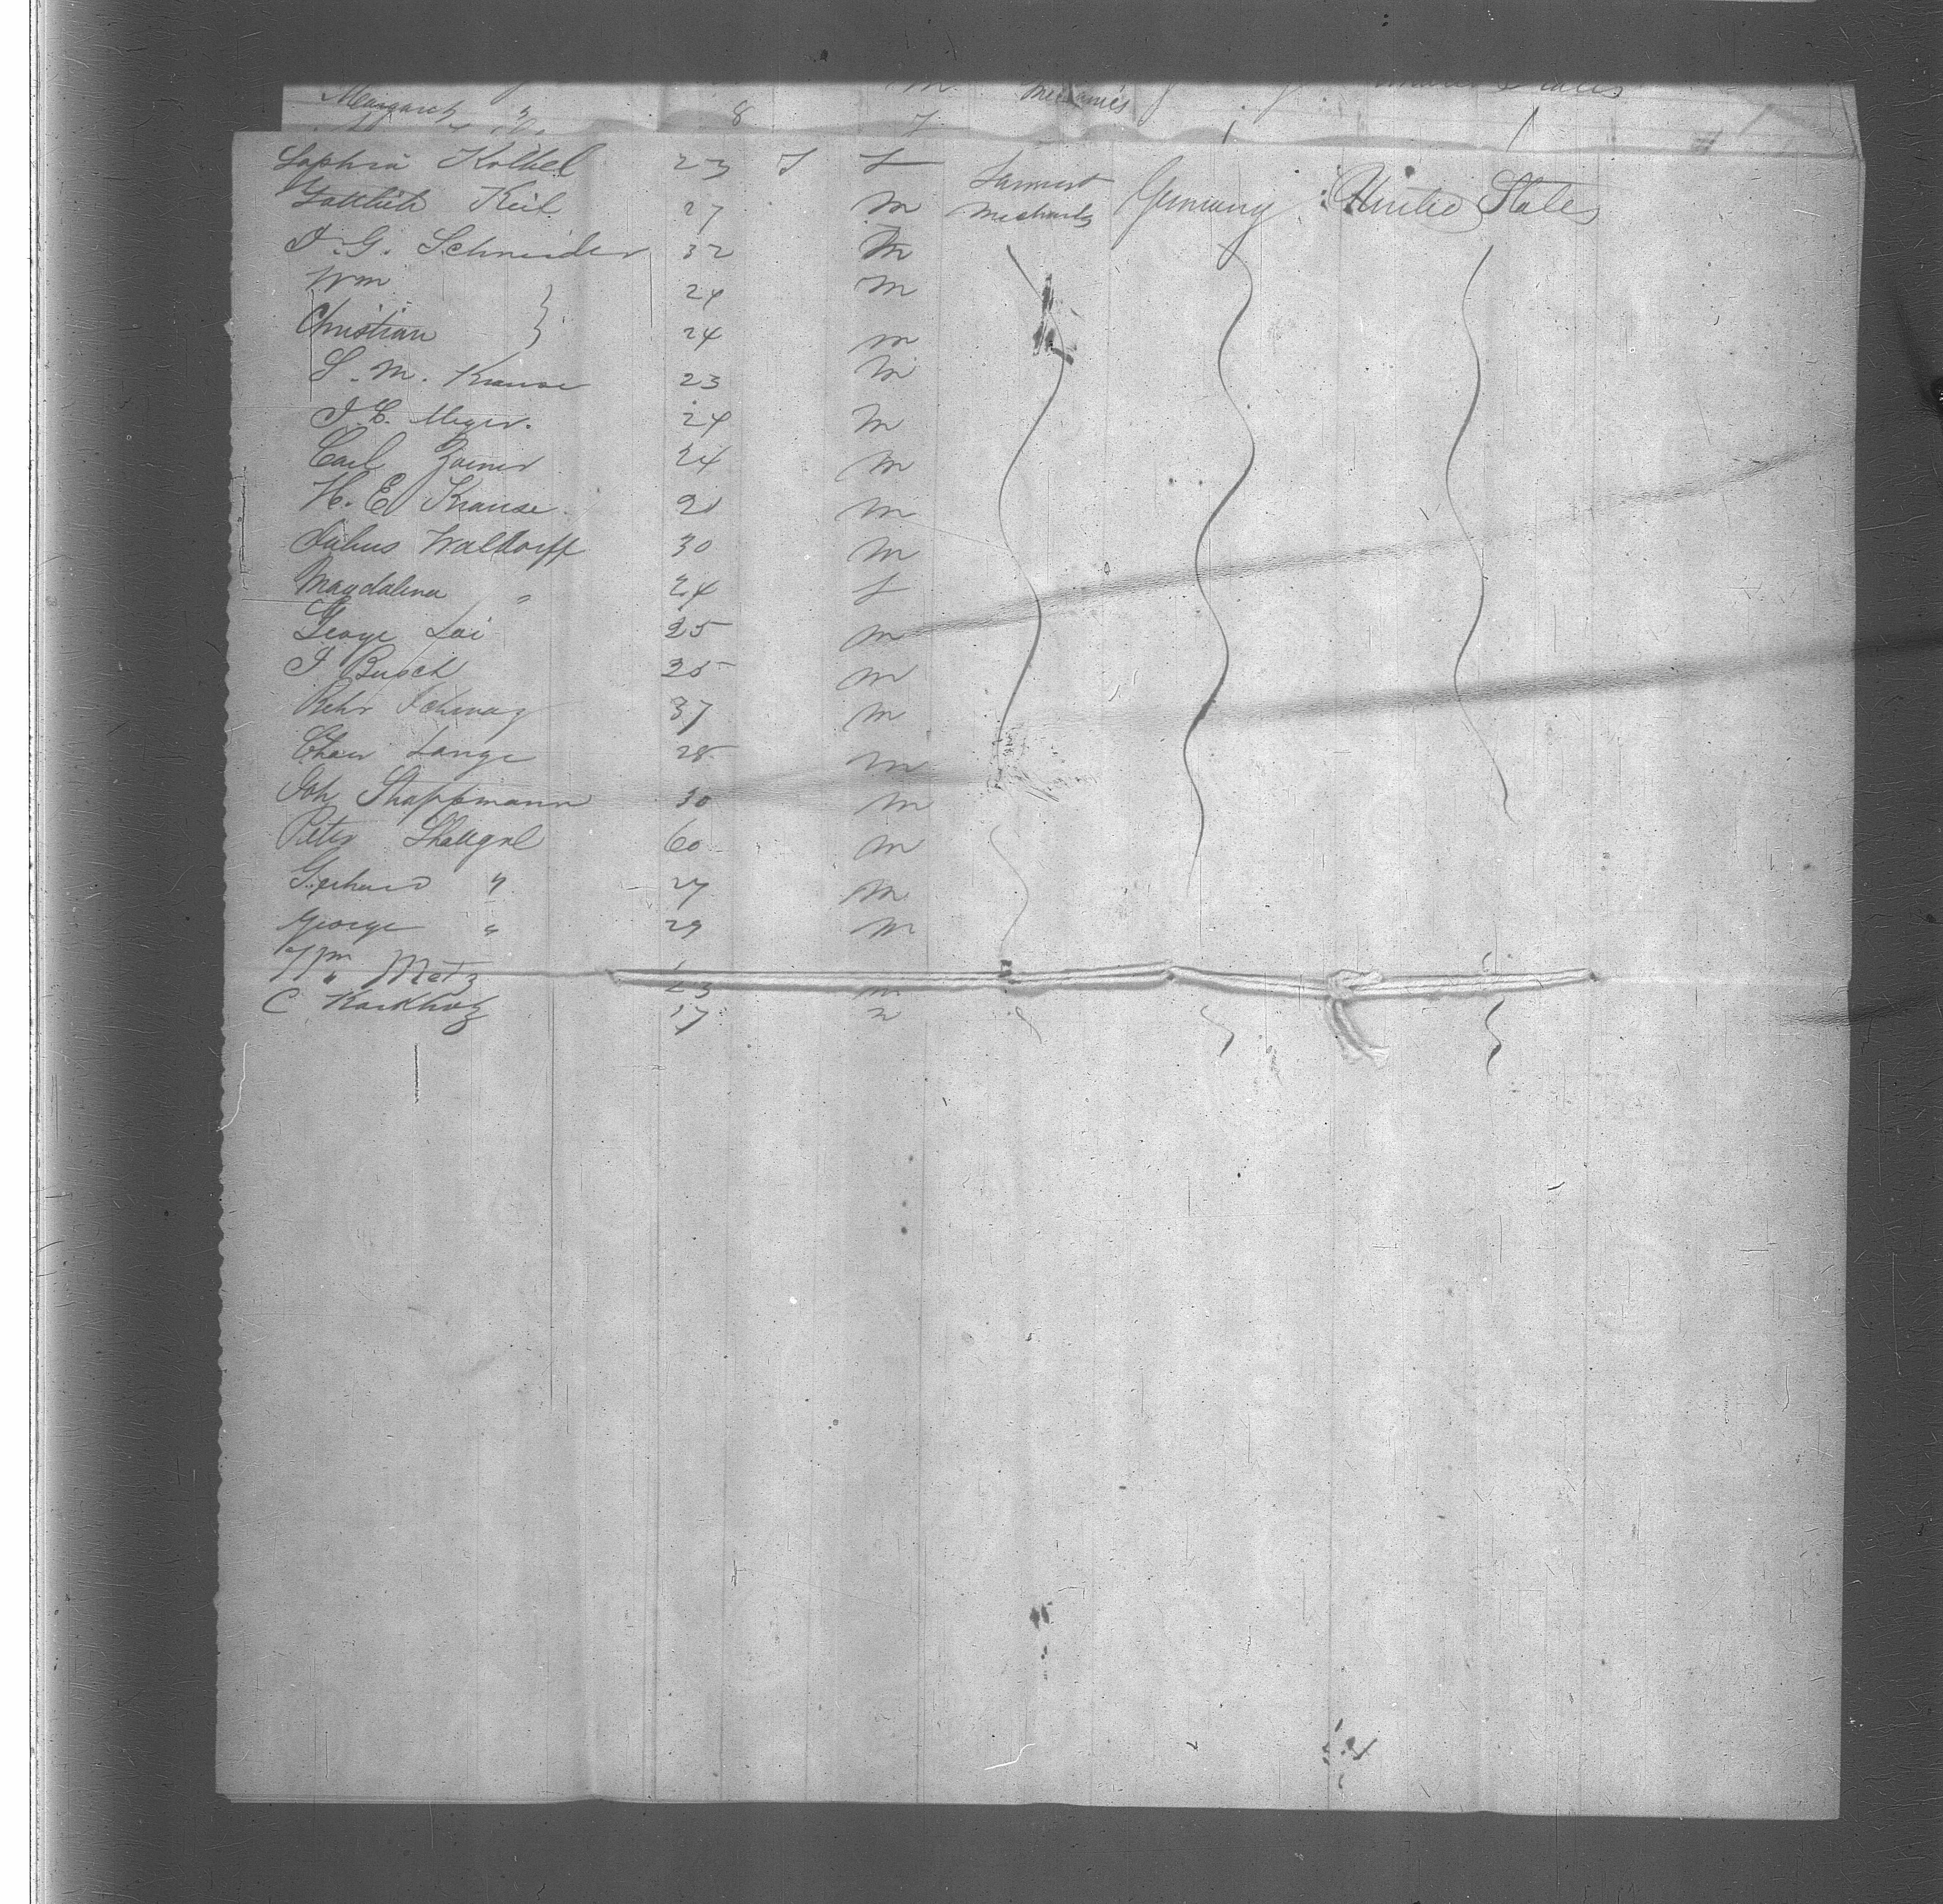 Mechanics United States
Margareth " 8 f
Sophia Kolbel 23 f f Farmers
Gottlieb Keil 27 m Mechanics Germany United States
J. G. Schneider 32 m
Wm } 24 m
Christian } 24 m
S. M. Krause 23 m
J. C. Meyer. 24 m
Carl 24 m
H. E. Krause. m
Julius Waldorff 30 m
Magdalena " 24 f
George Loi 25 m
J Busch 35 m
37 m
Lange 28 m
Joh Shappmann 30 m
Peter 60 m
Gerhard " 27 m
George " 29 m
Wm Metz 23 m
C 17 m